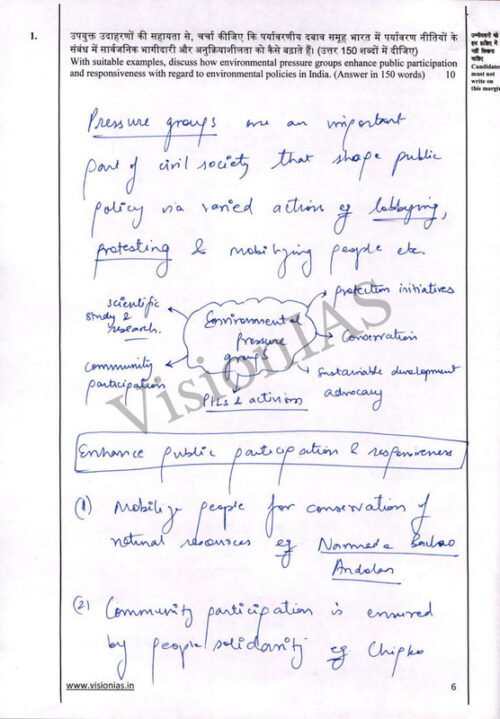 1. उपयुक्त उदाहरणों की सहायता से, चर्चा कीजिए कि पर्यावरणीय दबाव समूह भारत में पर्यावरण नीतियों के
संबंध में सार्वजनिक भागीदारी और अनुक्रियाशीलता को कैसे बढ़ाते हैं। (उत्तर 150 शब्दों में दीजिए)
With suitable examples, discuss how environmental pressure groups enhance public participation
and responsiveness with regard to environmental policies in India. (Answer in 150 words) 10
उम्मीदवारों को
इस हाशिए में
नहीं लिखना
चाहिए
Candidate
must not
write on
this margi
Pressure groups are an important
part of civil society that shape public
policy via varied action eg lobbying,
protesting & mobilizing people etc.
scientific
study &
research.
protection initiatives
Environmental
pressure
groups
Conservation
community
participation
sustainable development
advocacy
PILs & activism
VisionIAS
Enhance public participation & responsiveness
(1) Mobilize people for conservation of
natural resources eg Narmada Bachao
Andolan
(2) Community participation is ensured
by people solidarity eg Chipko
www.visionias.in
6